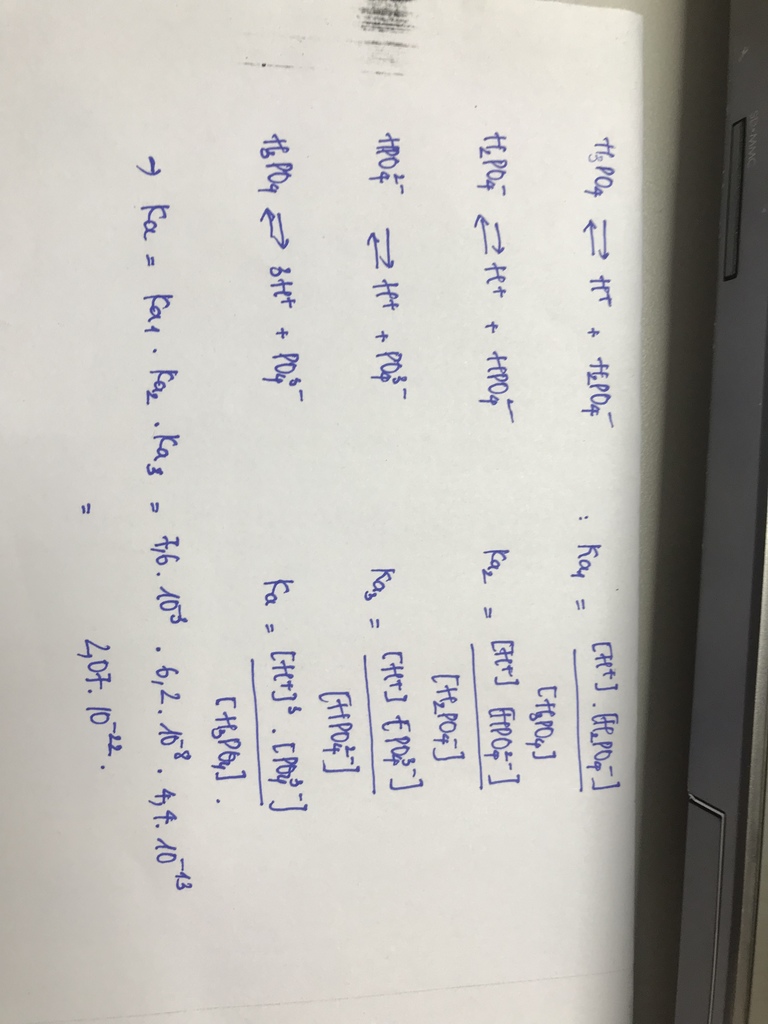 H₃PO₄ ⇌ H⁺ + H₂PO₄⁻ : Ka₁ = [H⁺] . [H₂PO₄⁻] / [H₃PO₄]
H₂PO₄⁻ ⇌ H⁺ + HPO₄²⁻ Ka₂ = [H⁺] [HPO₄²⁻] / [H₂PO₄⁻]
HPO₄²⁻ ⇌ H⁺ + PO₄³⁻ Ka₃ = [H⁺] [PO₄³⁻] / [HPO₄²⁻]
H₃PO₄ ⇌ 3H⁺ + PO₄³⁻ Ka = [H⁺]³ . [PO₄³⁻] / [H₃PO₄] .
→ Ka = Ka₁ . Ka₂ . Ka₃ = 7,6 . 10⁻³ . 6,2 . 10⁻⁸ . 4,4 . 10⁻¹³
= 2,07 . 10⁻²² .